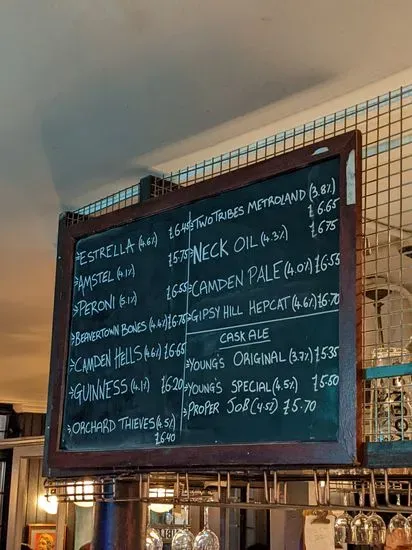 ESTRELLA (4.6%) £6.45
AMSTEL (4.1%) £5.75
PERONI (5.1%) £6.55
BEAVERTOWN BONES (4.4%) £6.75
CAMDEN HELLS (4.6%) £6.65
GUINNESS (4.1%) £6.20
ORCHARD THIEVES (4.5%)
£6.40
TWO TRIBES METROLAND (3.8%)
£6.65
NECK OIL (4.3%) £6.75
CAMDEN PALE (4.0%) £6.55
GIPSY HILL HEPCAT (4.6%) £6.70
CASK ALE
YOUNG'S ORIGINAL (3.7%) £5.35
YOUNG'S SPECIAL (4.5%) £5.50
PROPER JOB (4.5%) £5.70